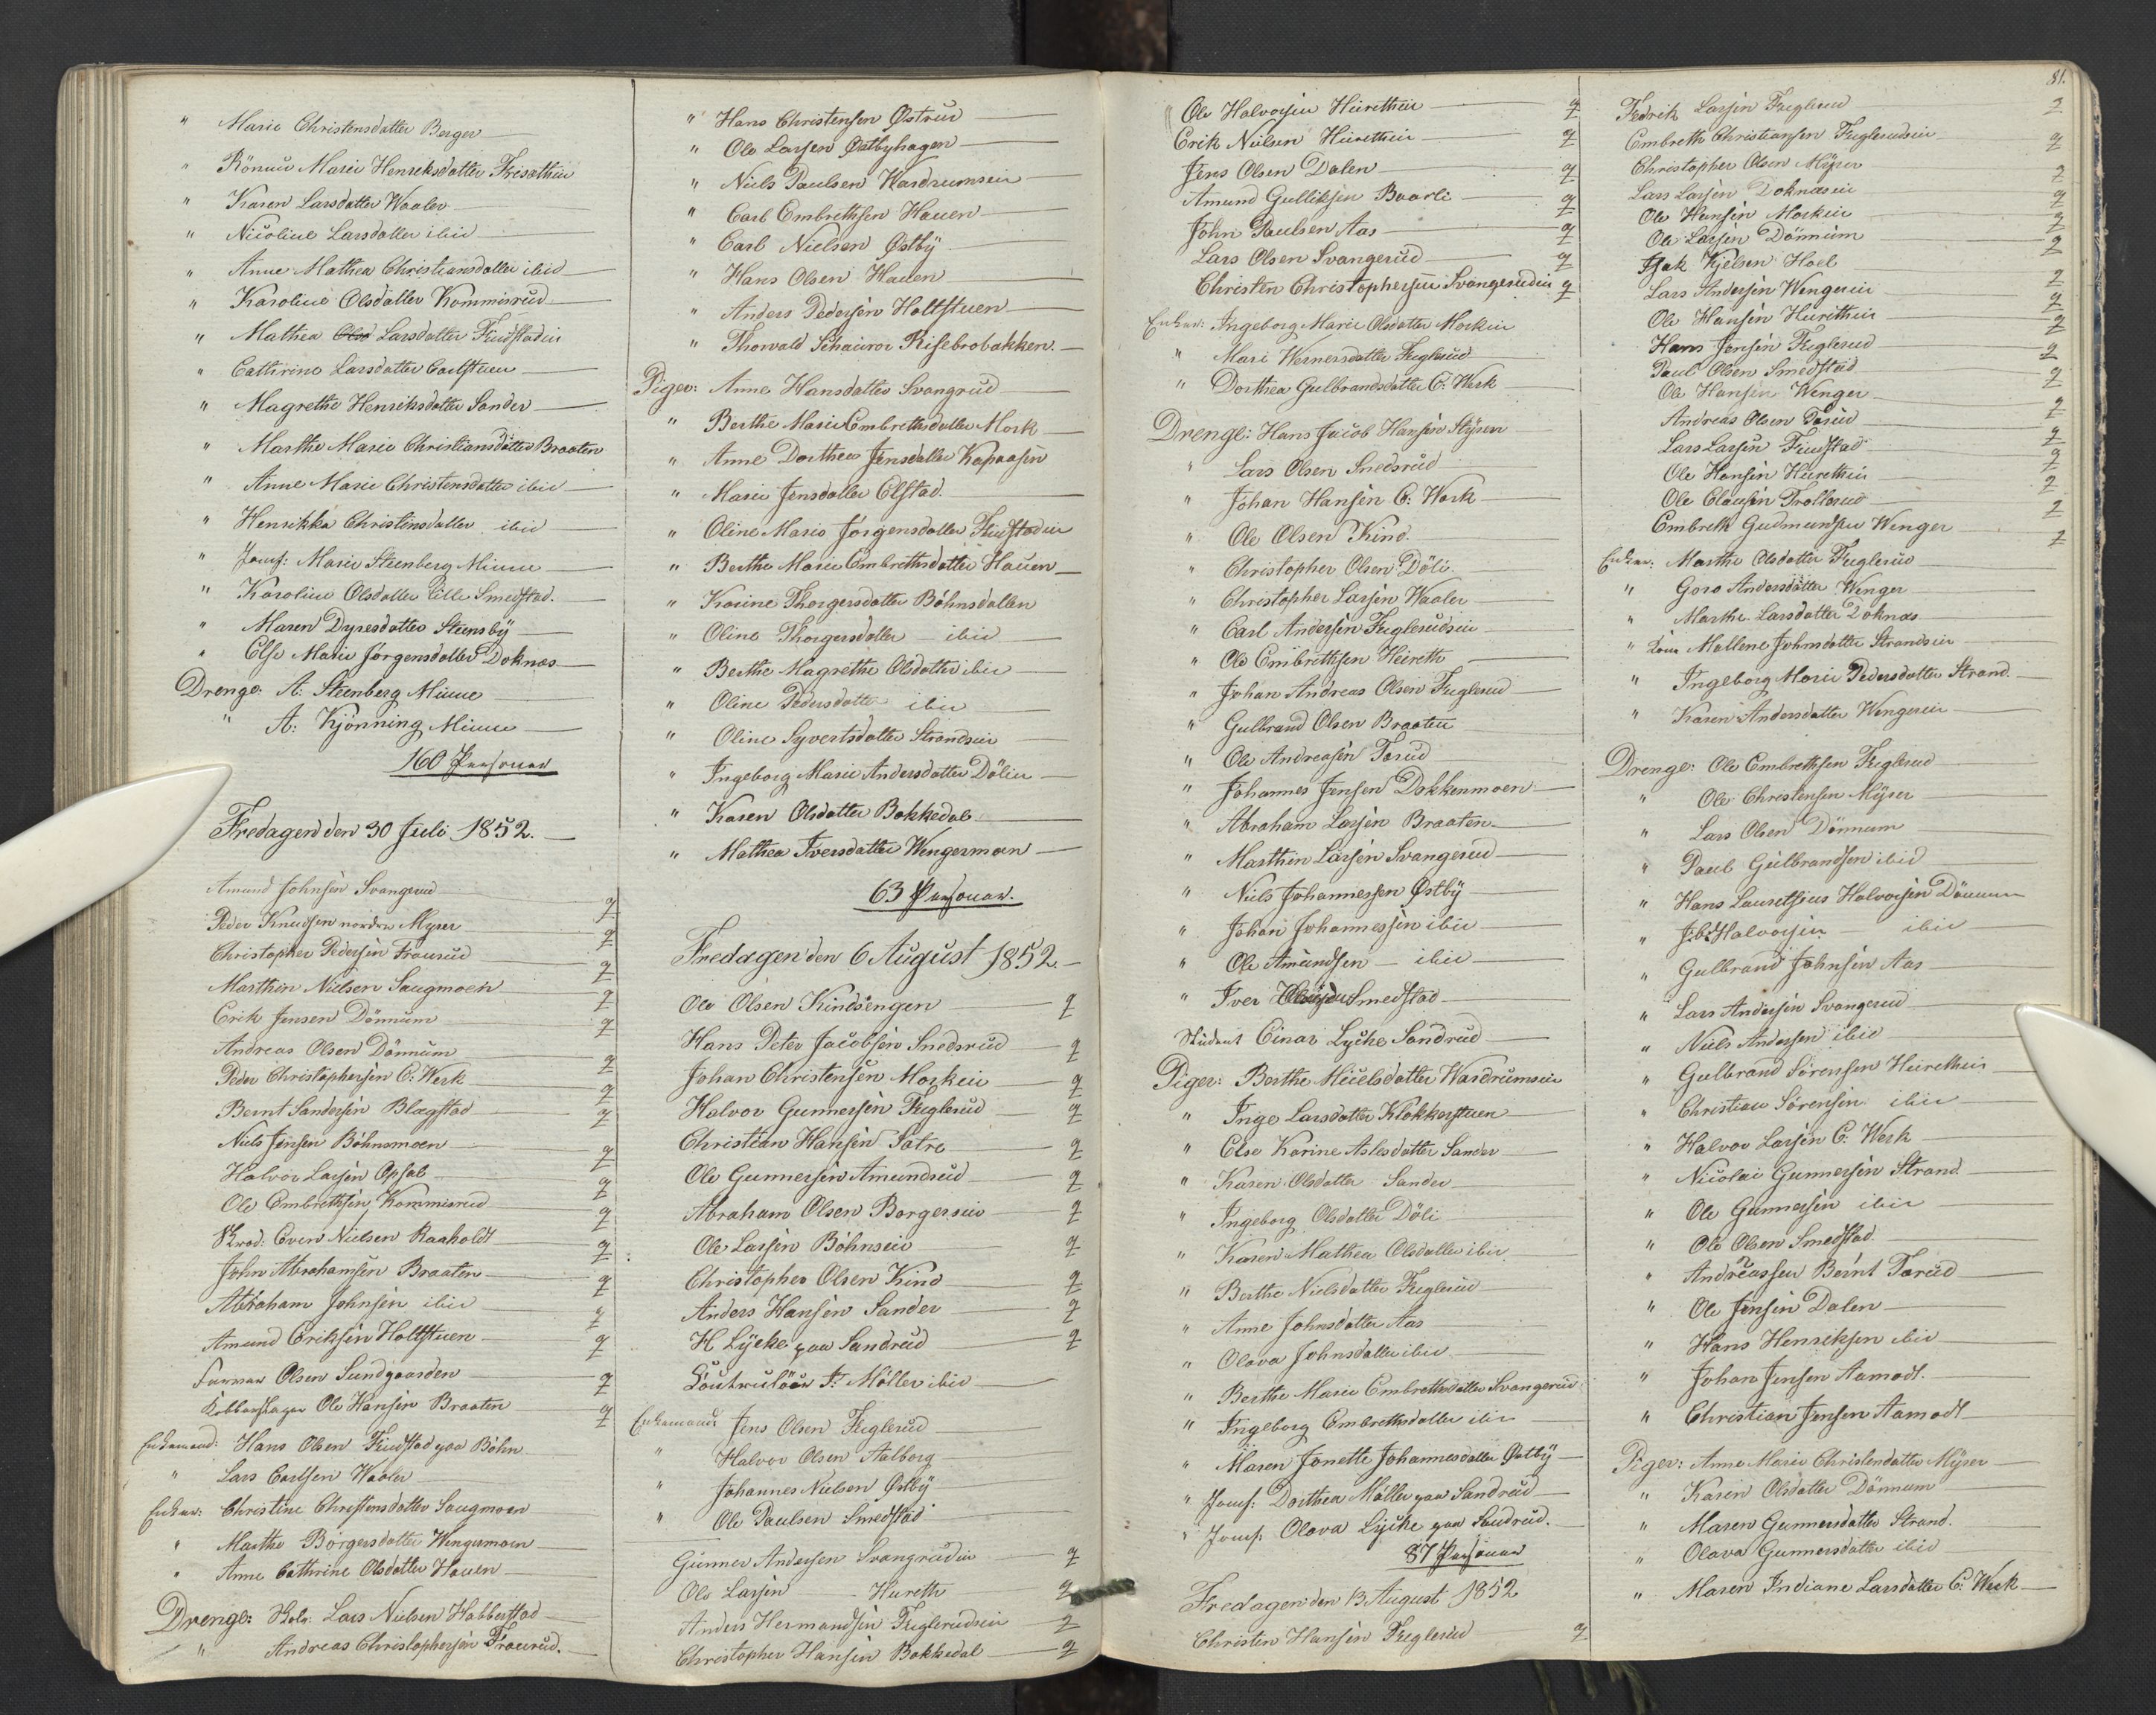 " Marie Christensdatter Berger
" Rönnie Marie Henriksdatter Frisæthie
" Karen Larsdatter Waaler
" Nicoline Larsdatter ibid
" Anne Mathea Christiansdatter ibid
" Karoline Olsdatter Kommisrud
" Mathea Larsdatter Findstadie
" Cathrine Larsdatter Carlstuen
" Magrethe Henriksdatter Sander
" Marthe Marie Christiansdatter Braaten
" Anne Marie Christensdatter ibid
" Henrikka Christensdatter ibid
" Jomf: Marie Steenberg Minne
" Karoline Olsdatter Lille Smedstad.
" Maren Dyresdatter Steensby
" Else Marie Jørgensdatter Doknæs
Drenge: A: Steenberg Minne
" A: Kjønning Minne
160 Personer
Fredagen den 30 Juli 1852.
Amund Johnsen Svangerud
Peder Knudsen nordre Myrer q
Christopher Pedersen Frourud q
Marthin Nielsen Saugmoen q
Erik Jensen Dönnum q
Andreas Olsen Dönnum q
Peder Christophersen E: Werk q
Bernt Sandersen Blegstad q
Niels Jensen Böhnsmoen q
Halvor Larsen Opsal q
Ole Embrethsen Kommisrud q
Skræd: Even Nielsen Raaholdt q
John Abrahamsen Braaten q
Abraham Johnsen ibid q
Amund Eriksen Holtstuen q
Olsen Sundgaarden q
Ole Hansen Braaten q
Enkemand: Hans Olsen Findstad paa Böhn
" Lars Carlsen Waaler
Enker: Christine Christensdatter Saugmoen
" Marthe Börgersdatter Wengermoen
" Anne Cathrine Olsdatter Hauen
Drenge: Skolr. Lars Nielsen Habberstad
" Andreas Christophersen Frourud.
" Hans Christensen Østrud
" Ole Larsen Østbyhagen
" Niels Paulsen Wardrumseie
" Carl Embrethsen Hauen
" Carl Nielsen Østby
" Hans Olsen Hauen
" Anders Pedersen Holtstuen
" Thorvald Schauroe Risebrobakken.
Piger: Anne Hansdatter Svangrud
" Berthe Marie Embrethsdatter Mork
" Anne Dorthea Jensdatter Kapaasen
" Marie Jensdatter Elstad.
" Oline Marie Jørgensdatter Findstadeie
" Berthe Marie Embrethsdatter Hauen
" Karine Thorgersdatter Böhnsdallen
" Oline Thorgersdatter ibid
" Berthe Magrethe Olsdatter ibid
" Oline Pedersdatter ibid
" Oline Syvertsdatter Strandseie
" Ingeborg Marie Andersdatter Dölie
" Karen Olsdatter Bakkedal
" Mathea Iversdatter Wengermoen
63 Personer.
Fredagen den 6 August 1852.
Ole Olsen Kindsengen q
Hans Peter Jacobsen Snedsrud q
Johan Christensen Morkeie q
Halvor Gunnersen Fuglerud q
Christian Hansen Satre q
Ole Gunnersen Amundrud q
Abraham Olsen Borgerseie q
Ole Larsen Böhnseie q
Christopher Olsen Kind q
Anders Hansen Sander q
H Lycke paa Sandrud q
P. Möller ibid
Enkemænd: Jens Olsen Fuglerud
" Halvor Olsen Aalborg
" Johannes Nielsen Østby
" Ole Paulsen Smedstad
Gunner Andersen Svangrudeie q
Ole Larsen Hureth q
Anders Hermandsen Fuglerudseie q
Christopher Hansen Bakkedal q
Ole Halvorsen Hurethie q
Erik Nielsen Hurethie q
Jens Olsen Dalen q
Amund Gulliksen Baarli q
John Paulsen Aas q
Lars Olsen Svangerud q
Christen Christophersen Svangerudeie q
Enker: Ingeborg Marie Olsdatter Morkeie
" Mari Wernersdatter Fuglerud
" Dorthea Gulbrandsdatter E: Werk
Drenge: Hans Jacob Hansen Styren
" Lars Olsen Snedsrud
" Johan Hansen E: Werk
" Ole Olsen Kind.
" Christopher Olsen Döli.
" Christopher Larsen Waaler
" Carl Andersen Fuglerudseie
" Ole Embrethsen Heireth
" Johan Andreas Olsen Fuglerud
" Gulbrand Olsen Braaten
" Ole Andreasen Tærud
" Johannes Jensen Dokkenmoen
" Abraham Larsen Braaten
" Marthin Larsen Svangerud
" Niels Johannessen Østby
" Johan Johannessen ibid
" Ole Amundsen ibid
" Iver Smedstad
Student Einar Lycke Sandrud
Piger: Berthe Nielsdatter Wardrumseie
" Inge Larsdatter Klokkerstuen
" Else Karine Aslesdatter Sander
" Karen Olsdatter Sander
" Ingeborg Olsdatter Döli
" Karen Mathea Olsdatter ibid
" Berthe Nielsdatter Fuglerud
" Anne Johnsdatter Aas
" Olava Johnsdatter ibid
" Berthe Marie Embrethsdatter Svangerud
" Ingeborg Embrethsdatter ibid
" Maren Jonette Johannesdatter Østby
" Jomf: Dorthea Møller paa Sandrud
" Jomf: Olava Lycke paa Sandrud.
87 Personer
Fredagen den 13 August 1852
Christen Hansen Fuglerud q
81.
Fedrik Larsen Fuglerud q
Embreth Christiansen Fuglerudeie q
Christopher Olsen Myrer q
Lars Larsen Doknæseie q
Ole Hansen Morkeie q
Ole Larsen Dönnum q
Isak Kjelsen Hoel
Lars Andersen Wengereie q
Ole Hansen Hurethie q
Hans Jensen Fuglerud q
Paul Olsen Smedstad q
Ole Hansen Wenger q
Andreas Olsen Tærud q
Lars Larsen Findstad q
Ole Hansen Hurethie q
Ole Clausen Trollerud q
Embreth Gudmundsen Wenger q
Enker: Marthe Olsdatter Fuglerud
" Goro Andersdatter Wenger
" Marthe Larsdatter Doknæs
" Kone Mallene Johnsdatter Strandseie
" Ingeborg Marie Pedersdatter Strand.
" Karen Andersdatter Wengereie
Drenge: Ole Embrethsen Fuglerud
" Ole Christensen Myrer
" Lars Olsen Dönnum
" Paul Gulbrandsen ibid
" Hans Lauretsius Halvorsen Dönnum
" Halvorsen ibid
" Gulbrand Johnsen Aas
" Lars Andersen Svangerud
" Niels Andersen ibid
" Gulbrand Sörensen Heirethie
" Christian Sörensen ibid
" Halvor Larsen E: Werk
" Nicolai Gunnersen Strand
" Ole Gunnersen ibid
" Ole Olsen Smedstad.
" Andreassen Bernt Tærud
" Ole Jensen Dalen
" Hans Henriksen ibid
" Johan Jensen Aamodt.
" Christian Jensen Aamodt
Piger: Anne Marie Christensdatter Myrer
" Karen Olsdatter Dönnum
" Maren Gunnersdatter Strand.
" Olava Gunnersdatter ibid
" Maren Indiane Larsdatter E: Werk